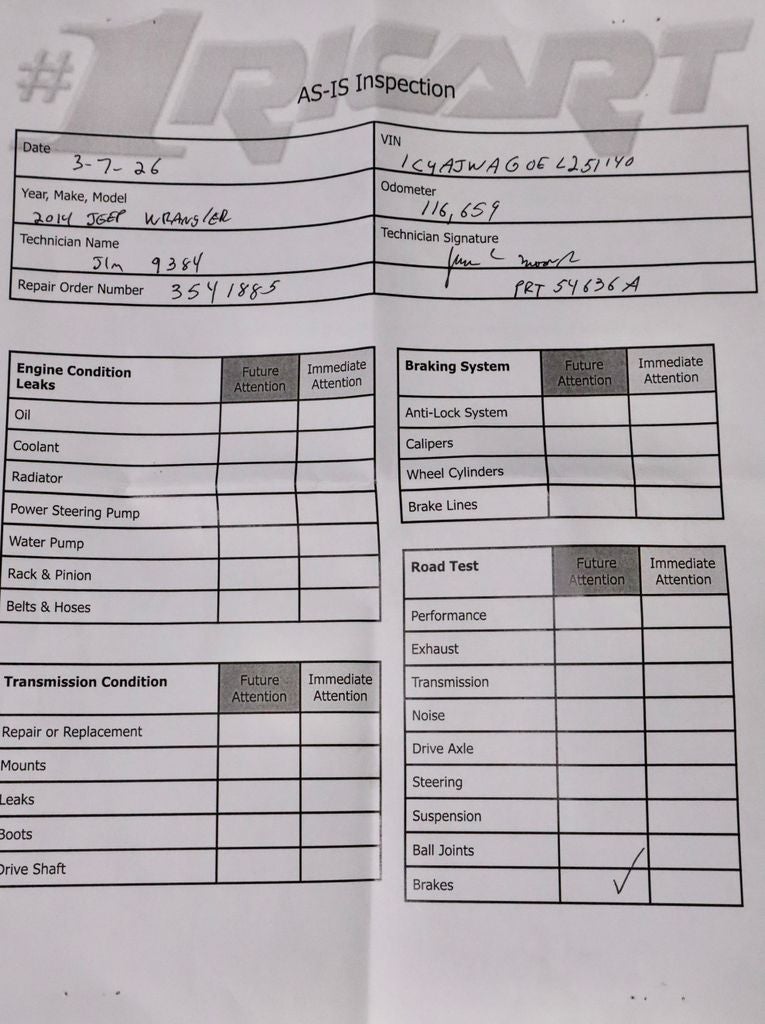 #1RICART
AS-IS Inspection
Date 3-7-26
VIN 1C4AJWAG0EL251140
Year, Make, Model 2014 JEEP WRANGLER
Odometer 116,659
Technician Name JIM 9384
Technician Signature
Repair Order Number 3541885
PRT 54636A
Engine Condition Leaks Future Attention Immediate Attention
Oil
Coolant
Radiator
Power Steering Pump
Water Pump
Rack & Pinion
Belts & Hoses
Transmission Condition Future Attention Immediate Attention
Repair or Replacement
Mounts
Leaks
Boots
Drive Shaft
Braking System Future Attention Immediate Attention
Anti-Lock System
Calipers
Wheel Cylinders
Brake Lines
Road Test Future Attention Immediate Attention
Performance
Exhaust
Transmission
Noise
Drive Axle
Steering
Suspension
Ball Joints
Brakes ✓